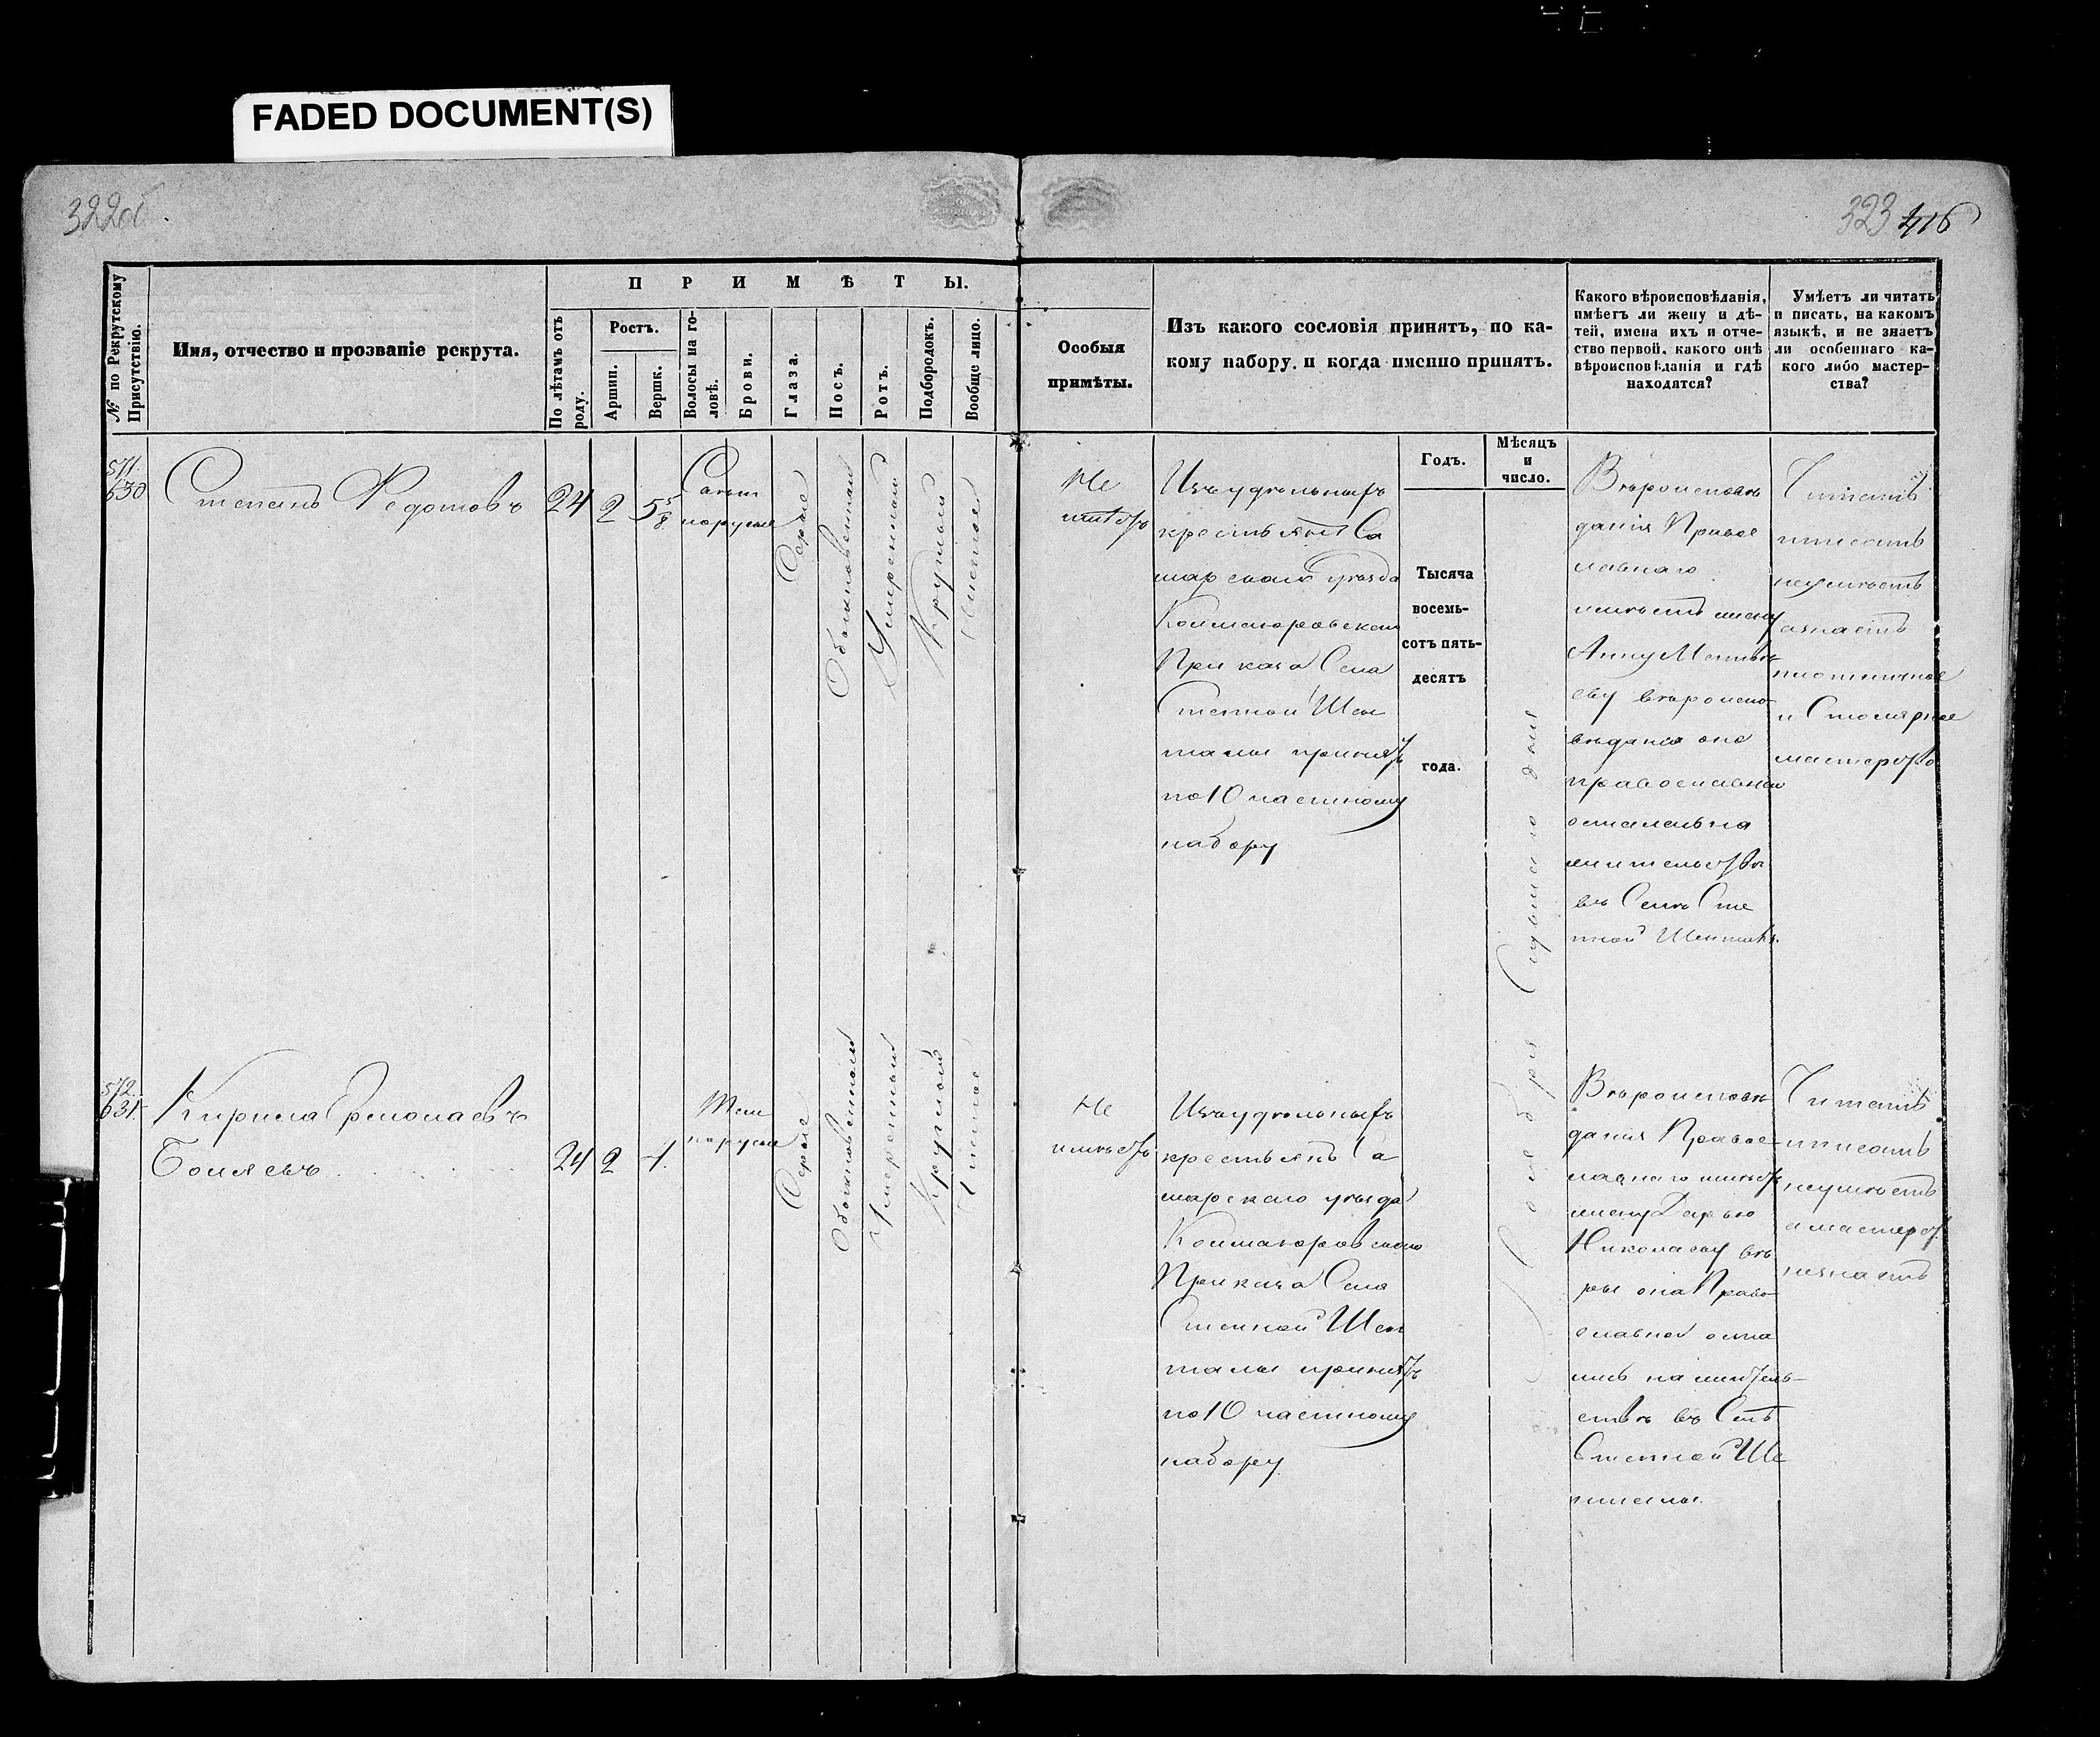 FADED DOCUMENT(S)
322об.
323 416
№ по Рекрутскому Присутствію.
Имя, отчество и прозваніе рекрута.
ПРИМѢТЫ.
По лѣтамъ отъ роду.
Ростъ.
Аршин.
Вершк.
Волосы на головѣ.
Брови.
Глаза.
Носъ.
Ротъ.
Подбородокъ.
Вообще лицо.
Особыя
примѣты.
Изъ какого сословія принятъ, по ка-
кому набору, и когда именно принятъ.
Какого вѣроисповѣданія,
имѣетъ ли жену и дѣ-
тей, имена ихъ и отче-
ство первой, какого онѣ
вѣроисповѣданія и гдѣ
находятся?
Умѣетъ ли читать
и писать, на какомъ
языкѣ, и не знаетъ
ли особеннаго ка-
кого либо мастер-
ства?
Годъ.
Мѣсяцъ
и
число.
571.
630
Степанъ Федотовъ
24
2
5 5/8
русые
Сѣрые
Обыкновенной
Умеренной
Круглой
Чистое
Не
имѣетъ
Изъ удѣльныхъ
крестьянъ Са
марскаго уѣзда
Приказа Села
Степной Шен
талы принятъ
по 10 частному
набору
Тысяча
восемь-
сотъ пять-
десятъ
года.
Ноября Седьмаго дня
Вѣроиспове
данія Правос
лавнаго
имѣетъ жену
Анну
еву вѣроиспо
вѣданія она
православнаго
осталась на
жительстве
въ Селѣ Сте
пной Шентале.
Читать
писать
неумѣетъ
а знаетъ
плотничное
и Столярное
мастерство
572.
631.
Кирила Ермолаевъ
24
2
4.
Темно
русые
Сѣрые
Обыкновенной
Умеренный
Круглой
Чистое
Не
имѣетъ
Изъ удѣльныхъ
крестьянъ Са
марскаго уѣзда
Приказа Села
Степной Шен
талы принятъ
по 10 частному
набору
Вѣроисповѣ
данія Правос
лавнаго имѣетъ
жену Дарью
Николаеву вѣ
ры она Право
славной оста
лись на житель-
ствѣ въ Селѣ
Степной Ше
нталы.
Читать
писать
неумѣетъ
а мастерст.
незнаетъ